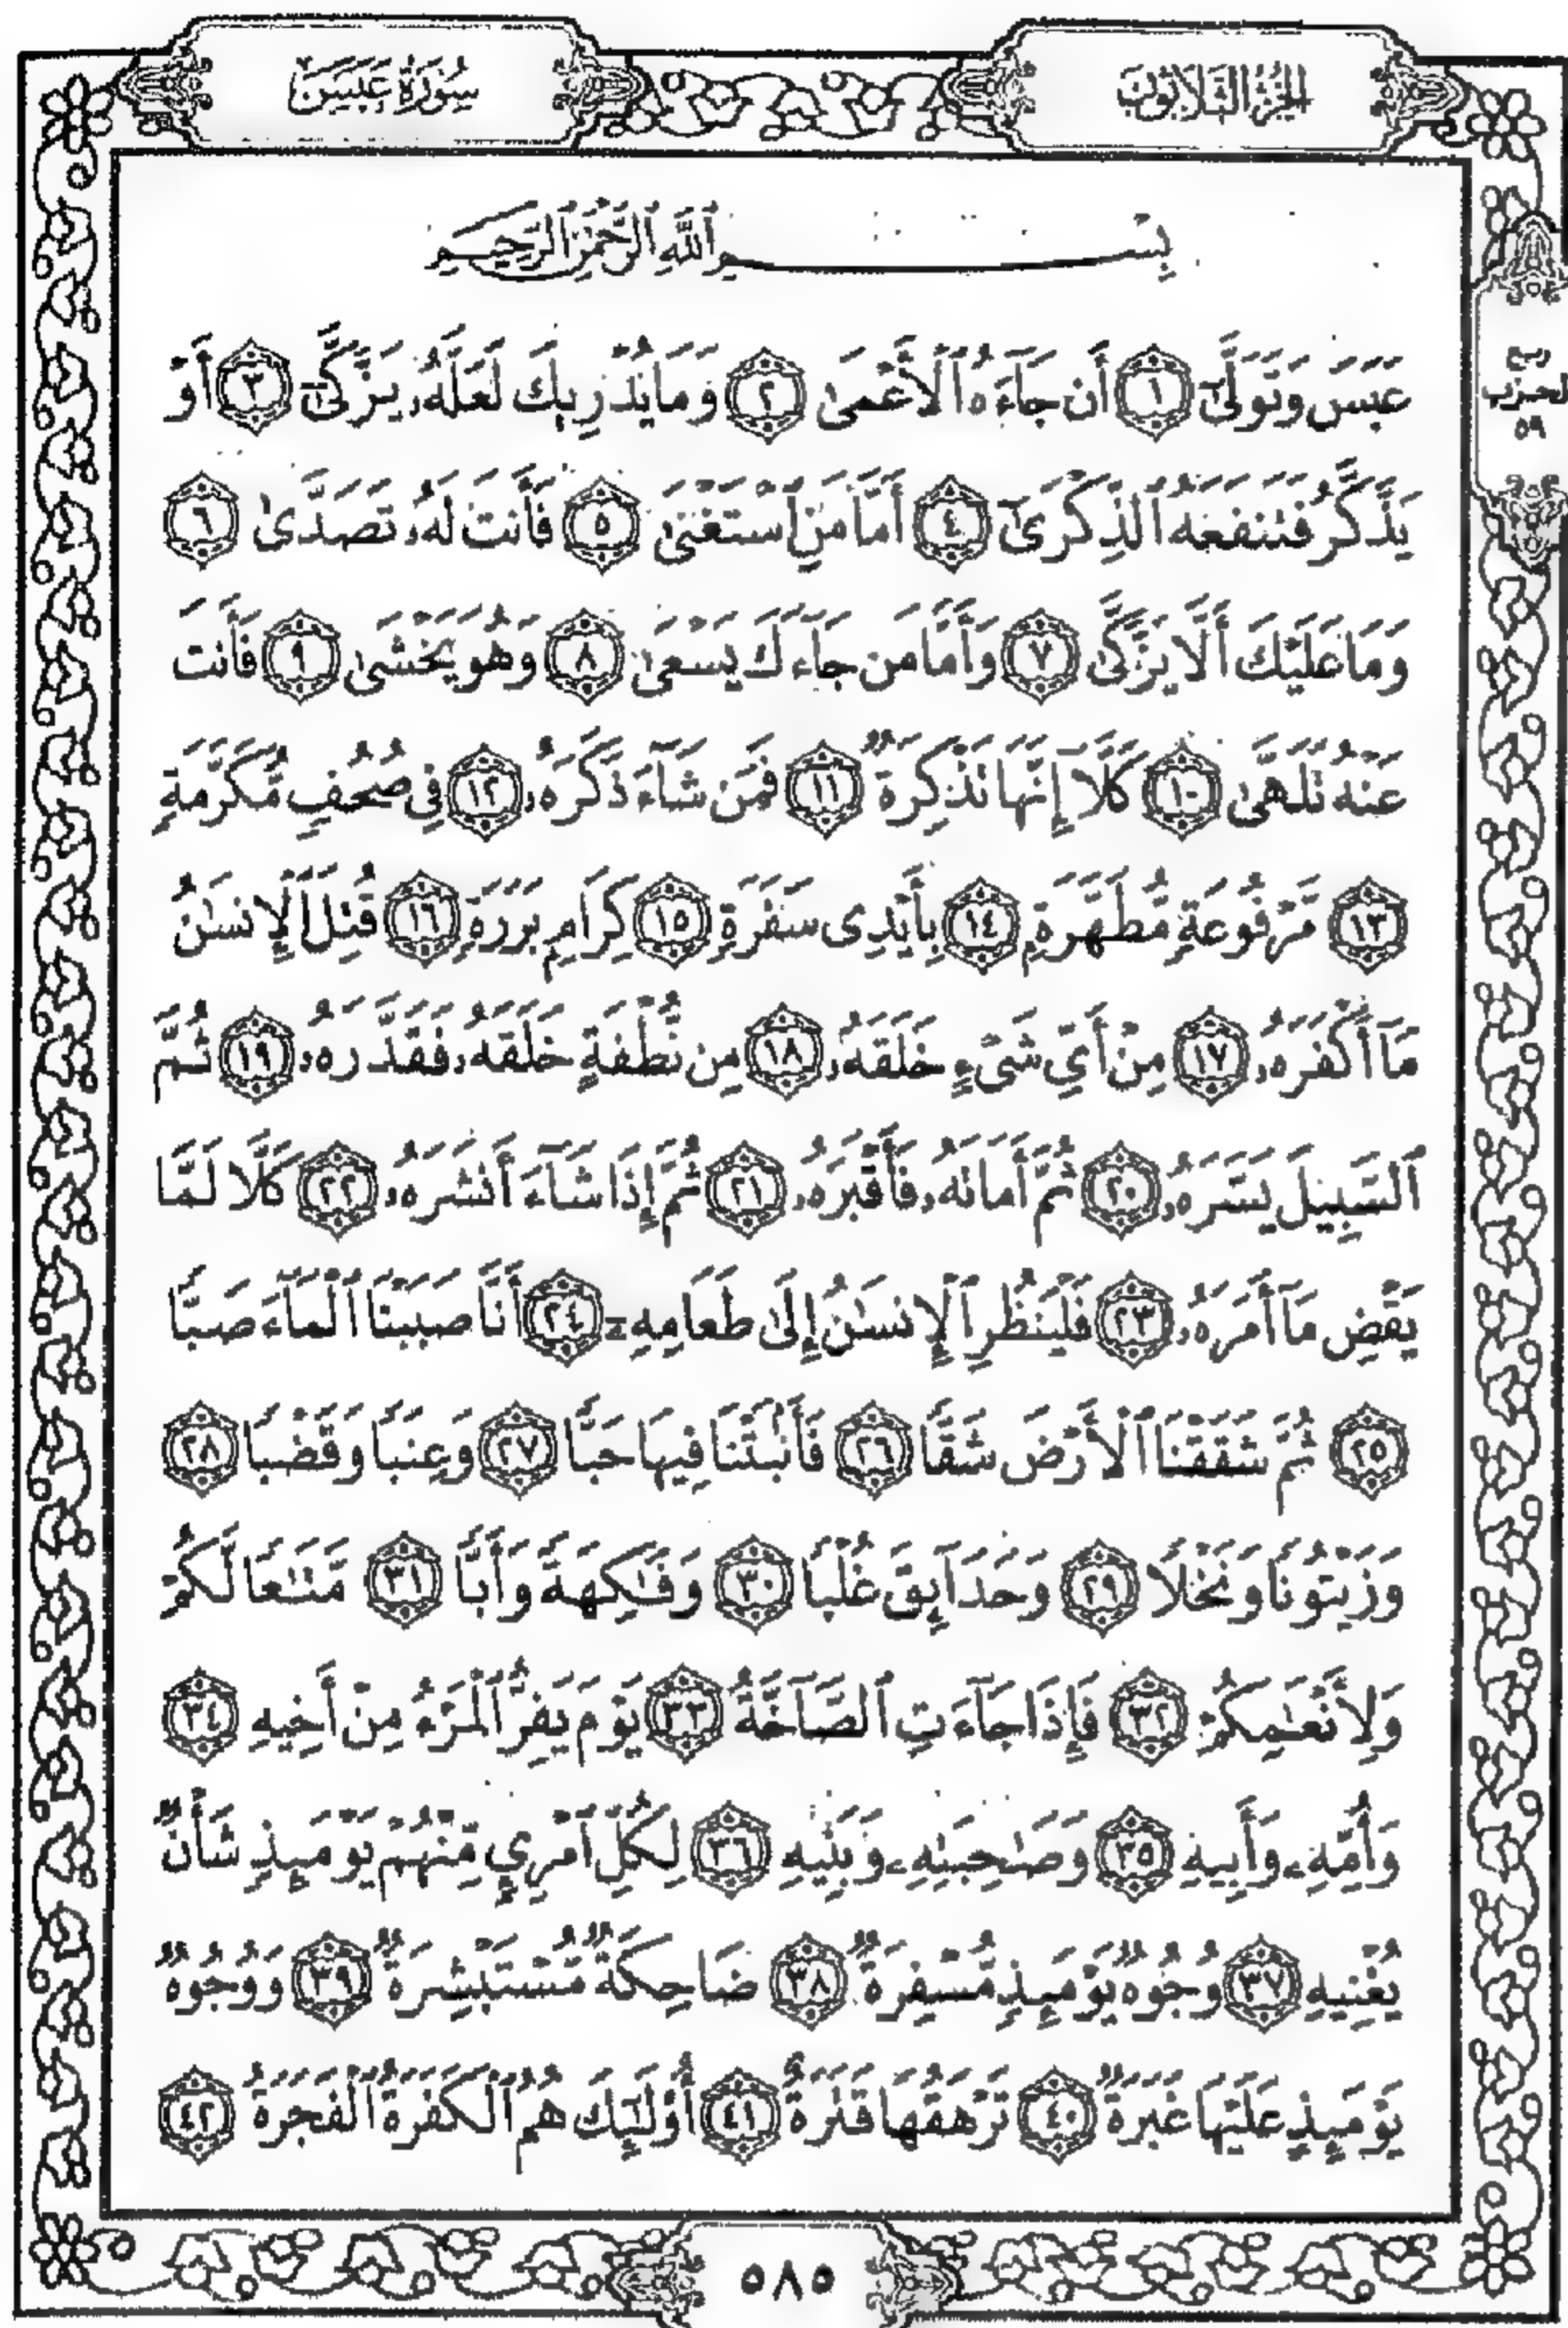 الجُزْءُ الثَّلَاثُونَ
سُورَةُ عَبَسَ
بِسْمِ ٱللَّهِ ٱلرَّحْمَٰنِ ٱلرَّحِيمِ
عَبَسَ وَتَوَلَّىٰٓ ١ أَن جَآءَهُ ٱلْأَعْمَىٰ ٢ وَمَا يُدْرِيكَ لَعَلَّهُۥ يَزَّكَّىٰٓ ٣ أَوْ
يَذَّكَّرُ فَتَنفَعَهُ ٱلذِّكْرَىٰٓ ٤ أَمَّا مَنِ ٱسْتَغْنَىٰ ٥ فَأَنتَ لَهُۥ تَصَدَّىٰ ٦
وَمَا عَلَيْكَ أَلَّا يَزَّكَّىٰ ٧ وَأَمَّا مَن جَآءَكَ يَسْعَىٰ ٨ وَهُوَ يَخْشَىٰ ٩ فَأَنتَ
عَنْهُ تَلَهَّىٰ ١٠ كَلَّآ إِنَّهَا تَذْكِرَةٌ ١١ فَمَن شَآءَ ذَكَرَهُۥ ١٢ فِى صُحُفٍ مُّكَرَّمَةٍ
١٣ مَّرْفُوعَةٍ مُّطَهَّرَةٍۭ ١٤ بِأَيْدِى سَفَرَةٍ ١٥ كِرَامٍۭ بَرَرَةٍ ١٦ قُتِلَ ٱلْإِنسَٰنُ
مَآ أَكْفَرَهُۥ ١٧ مِنْ أَىِّ شَىْءٍ خَلَقَهُۥ ١٨ مِن نُّطْفَةٍ خَلَقَهُۥ فَقَدَّرَهُۥ ١٩ ثُمَّ
ٱلسَّبِيلَ يَسَّرَهُۥ ٢٠ ثُمَّ أَمَاتَهُۥ فَأَقْبَرَهُۥ ٢١ ثُمَّ إِذَا شَآءَ أَنشَرَهُۥ ٢٢ كَلَّا لَمَّا
يَقْضِ مَآ أَمَرَهُۥ ٢٣ فَلْيَنظُرِ ٱلْإِنسَٰنُ إِلَىٰ طَعَامِهِۦٓ ٢٤ أَنَّا صَبَبْنَا ٱلْمَآءَ صَبًّا
٢٥ ثُمَّ شَقَقْنَا ٱلْأَرْضَ شَقًّا ٢٦ فَأَنۢبَتْنَا فِيهَا حَبًّا ٢٧ وَعِنَبًا وَقَضْبًا ٢٨
وَزَيْتُونًا وَنَخْلًا ٢٩ وَحَدَآئِقَ غُلْبًا ٣٠ وَفَٰكِهَةً وَأَبًّا ٣١ مَّتَٰعًا لَّكُمْ
وَلِأَنْعَٰمِكُمْ ٣٢ فَإِذَا جَآءَتِ ٱلصَّآخَّةُ ٣٣ يَوْمَ يَفِرُّ ٱلْمَرْءُ مِنْ أَخِيهِ ٣٤
وَأُمِّهِۦ وَأَبِيهِ ٣٥ وَصَٰحِبَتِهِۦ وَبَنِيهِ ٣٦ لِكُلِّ ٱمْرِئٍ مِّنْهُمْ يَوْمَئِذٍ شَأْنٌ
يُغْنِيهِ ٣٧ وُجُوهٌ يَوْمَئِذٍ مُّسْفِرَةٌ ٣٨ ضَاحِكَةٌ مُّسْتَبْشِرَةٌ ٣٩ وَوُجُوهٌ
يَوْمَئِذٍ عَلَيْهَا غَبَرَةٌ ٤٠ تَرْهَقُهَا قَتَرَةٌ ٤١ أُو۟لَٰٓئِكَ هُمُ ٱلْكَفَرَةُ ٱلْفَجَرَةُ ٤٢
ربع
الحزب
٥٩
٥٨٥